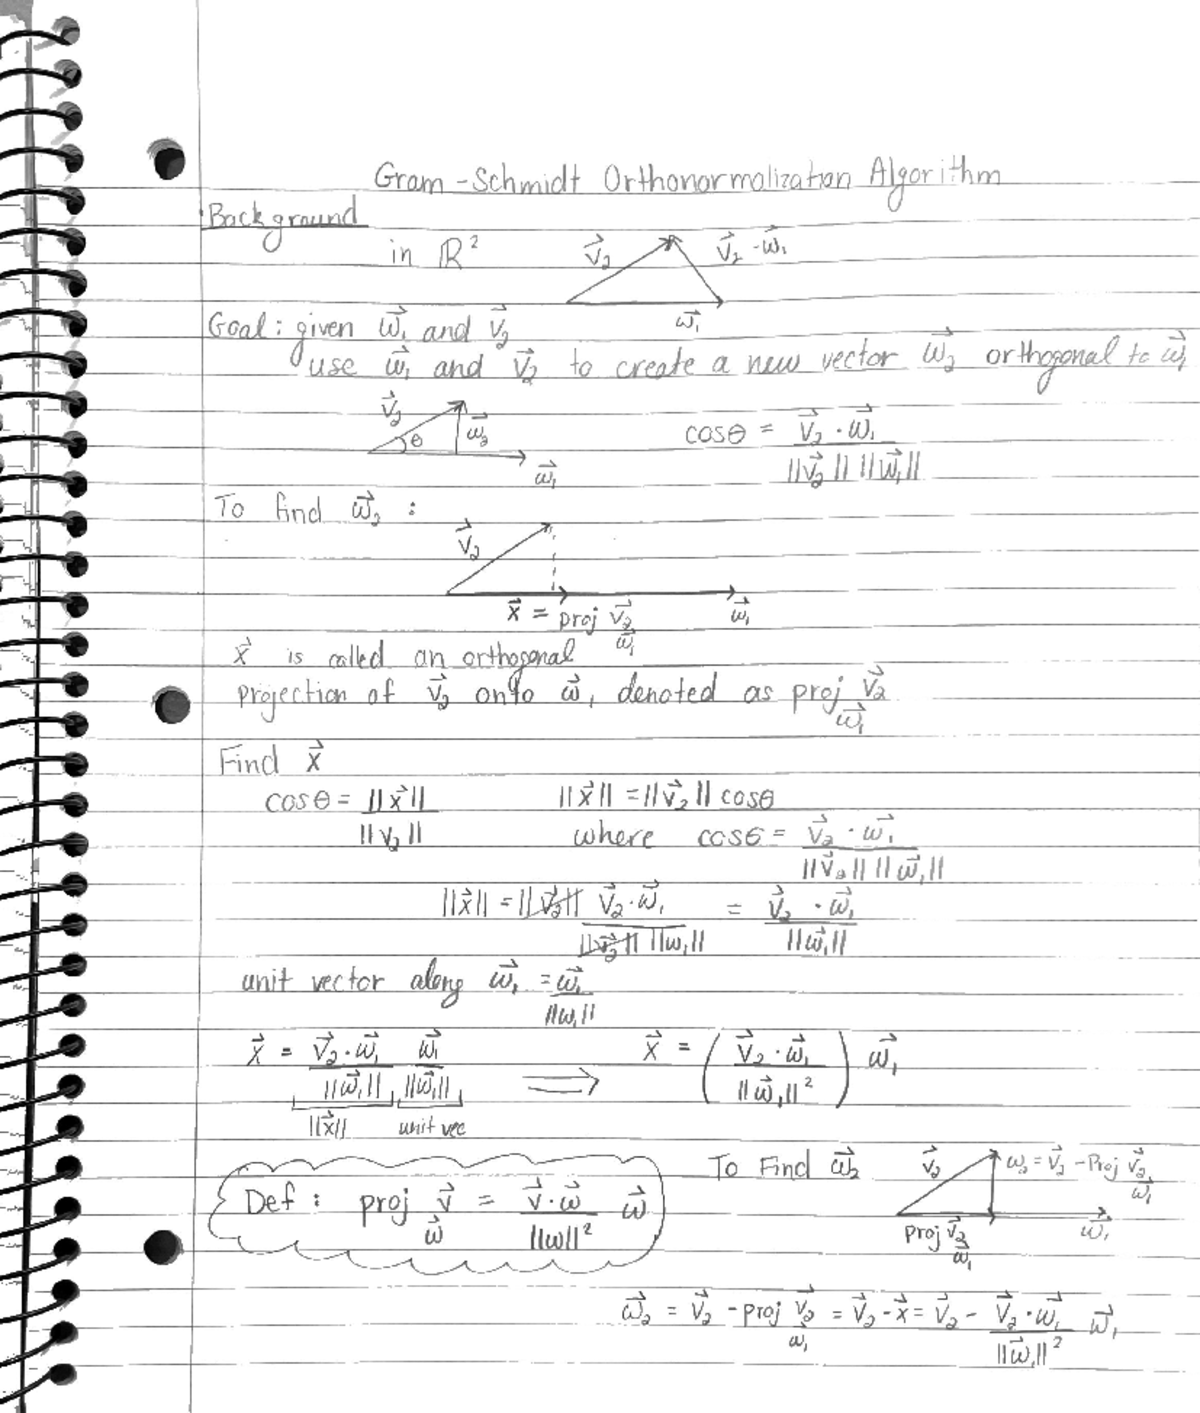 Gram-Schmidt Orthonormalization Algorithm
Background
in ℝ² v⃗₂ v⃗₂ - w⃗₁
w⃗₁
Goal: given w⃗₁ and v⃗₂
use w⃗₁ and v⃗₂ to create a new vector w⃗₂ orthogonal to w⃗₁
v⃗₂ θ w⃗₂ w⃗₁ cosθ = (v⃗₂ · w⃗₁) / (||v⃗₂|| ||w⃗₁||)
To find w⃗₂ :
v⃗₂
x⃗ = proj_w⃗₁ v⃗₂ w⃗₁
x⃗ is called an orthogonal
projection of v⃗₂ onto w⃗₁ denoted as proj_w⃗₁ v⃗₂
Find x⃗
cosθ = ||x⃗|| / ||v₂|| ||x⃗|| = ||v⃗₂|| cosθ
where cosθ = (v⃗₂ · w⃗₁) / (||v⃗₂|| ||w⃗₁||)
||x⃗|| = ||v⃗₂|| (v⃗₂ · w⃗₁) / (||v⃗₂|| ||w₁||) = (v⃗₂ · w⃗₁) / ||w⃗₁||
unit vector along w⃗₁ = w⃗₁ / ||w₁||
x⃗ = (v⃗₂ · w⃗₁) / ||w⃗₁|| w⃗₁ / ||w⃗₁|| ⟹ x⃗ = ( (v⃗₂ · w⃗₁) / ||w⃗₁||² ) w⃗₁
||x⃗|| unit vec
To Find w⃗₂ v⃗₂ w₂ = v⃗₂ - Proj_w⃗₁ v⃗₂
Def: proj_w⃗ v⃗ = (v⃗ · w⃗) / ||w||² w⃗
proj_w⃗₁ v⃗₂ w⃗₁
w⃗₂ = v⃗₂ - proj_w⃗₁ v⃗₂ = v⃗₂ - x⃗ = v⃗₂ - (v⃗₂ · w⃗₁) / ||w⃗₁||² w⃗₁